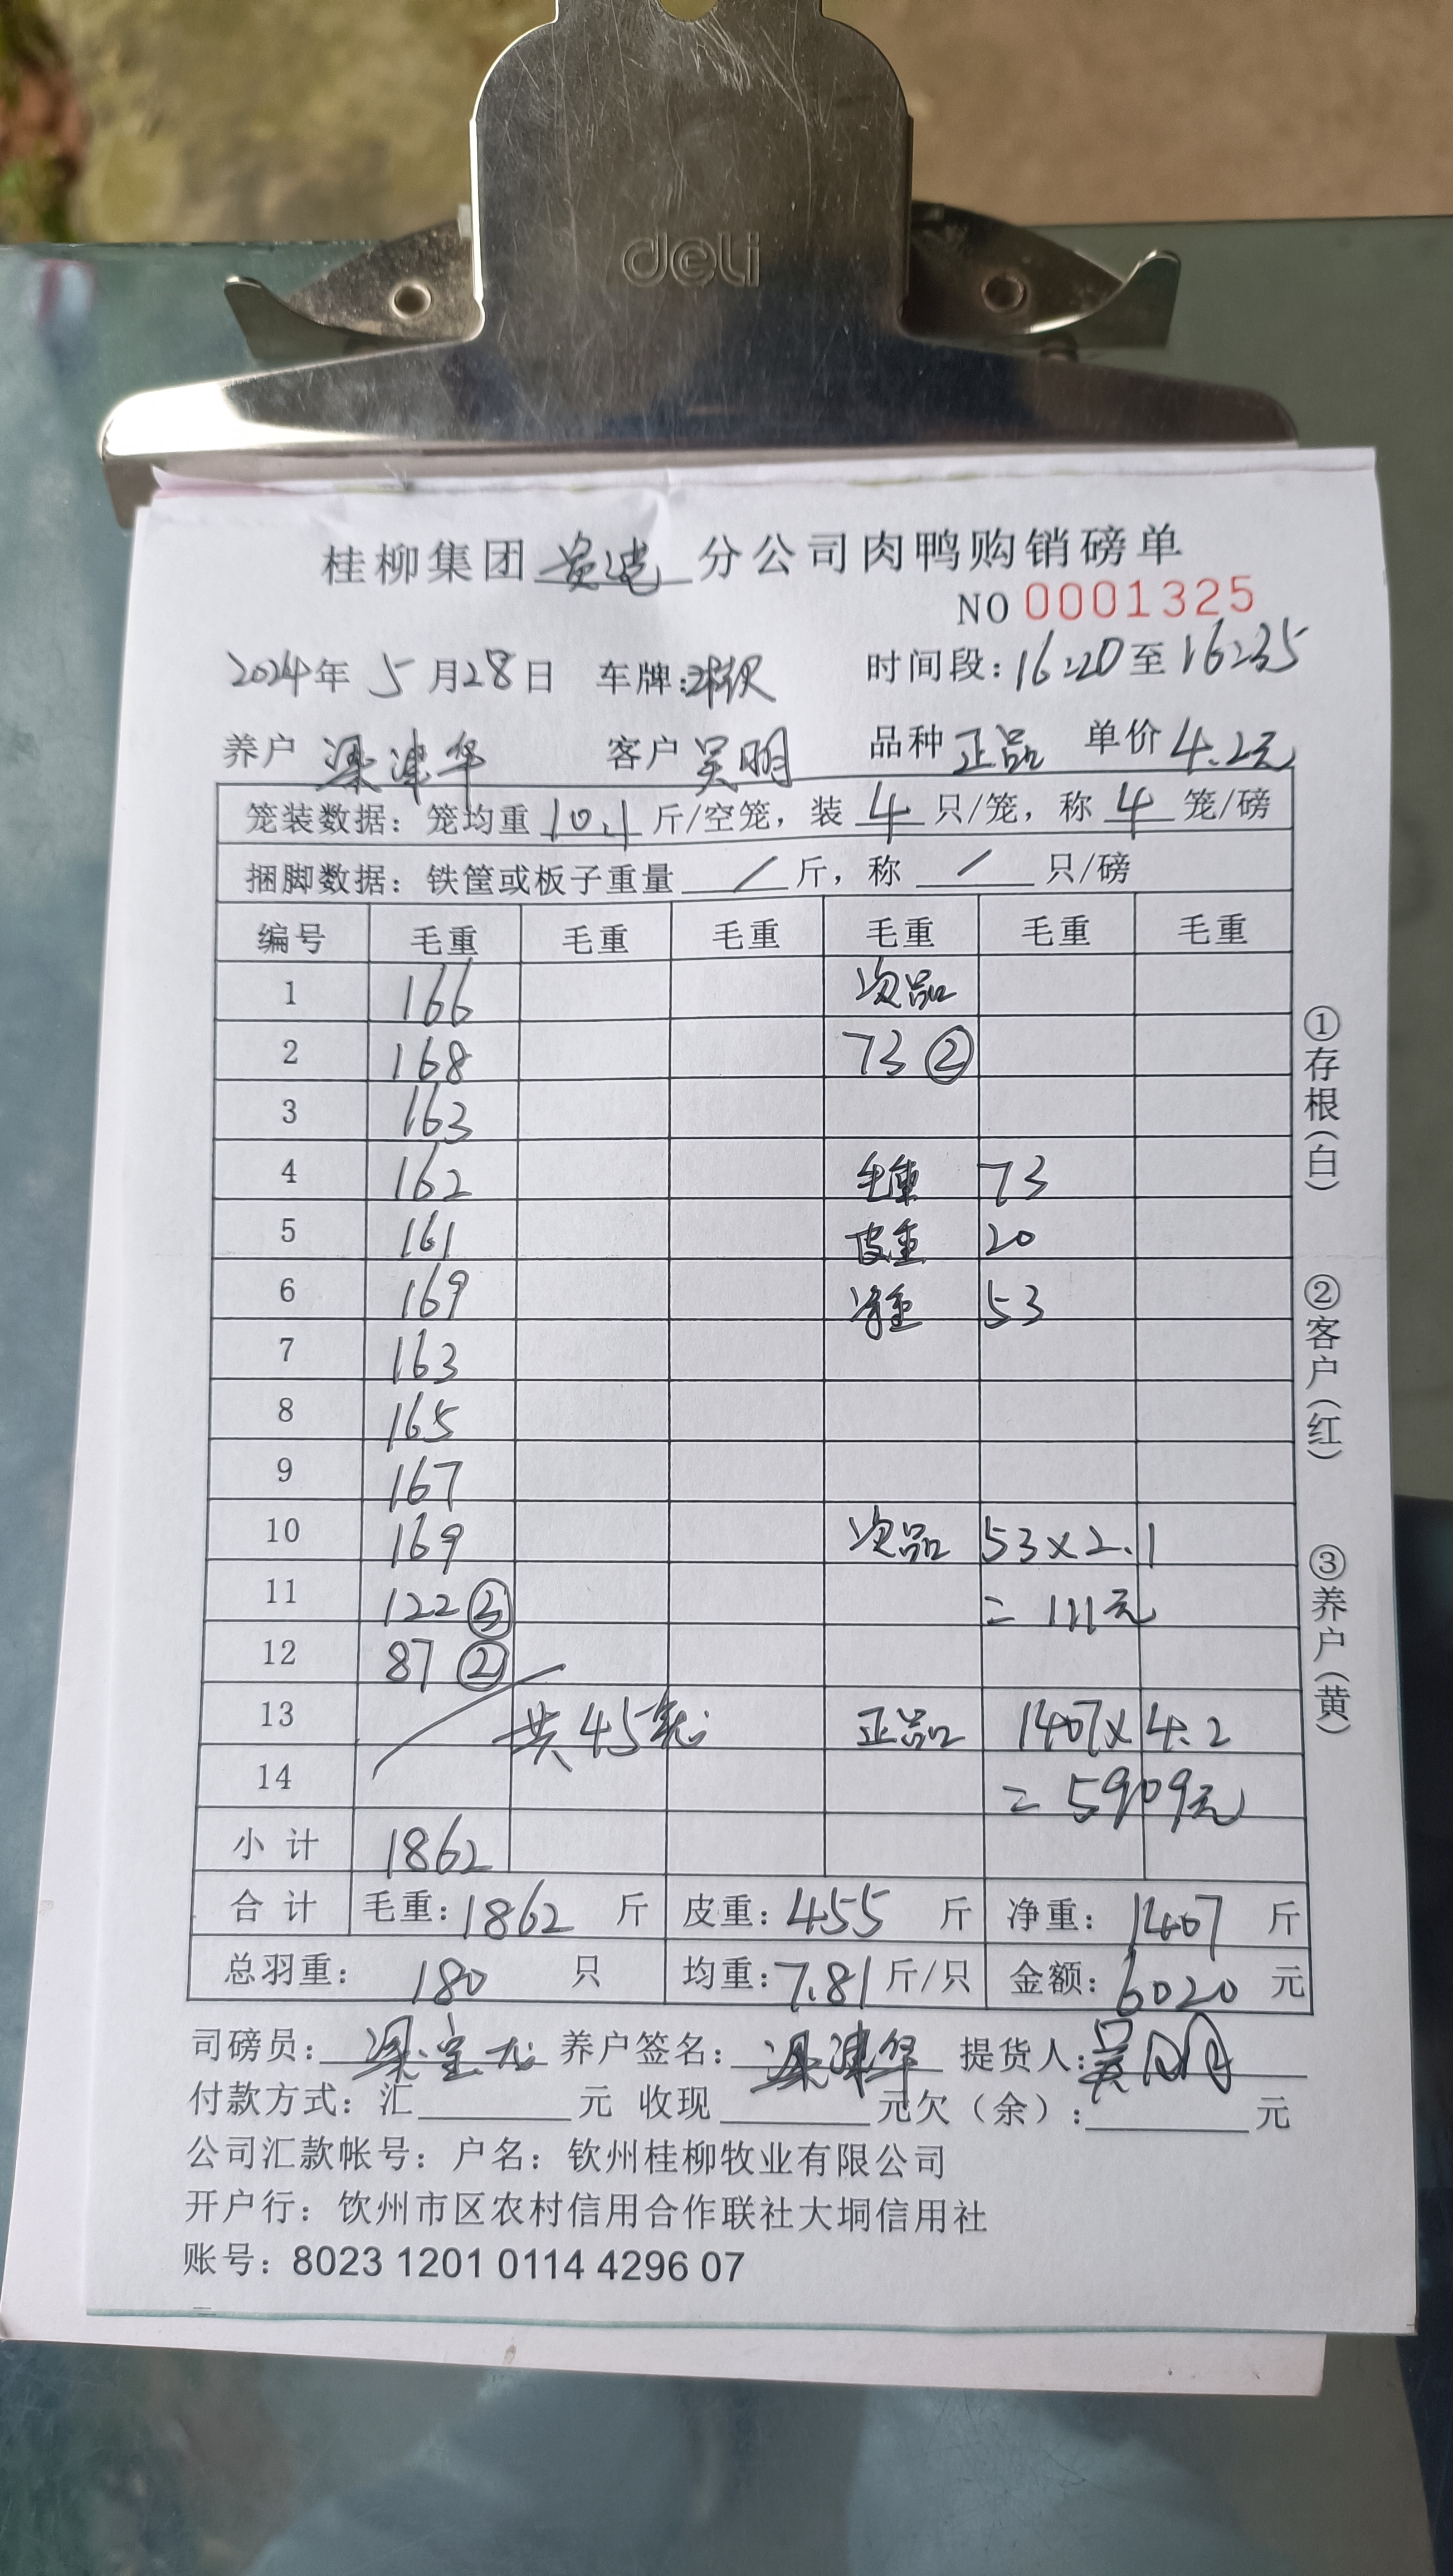 deli
桂柳集团黄屯分公司肉鸭购销磅单
NO 0001325
2024年 5月28日 车牌: 时间段:16:20至16:35
养户 梁津华 客户 吴明 品种 正品 单价 4.2元
笼装数据: 笼均重 10.1 斤/空笼, 装 4 只/笼, 称 4 笼/磅
捆脚数据: 铁筐或板子重量 / 斤, 称 / 只/磅
编号 毛重 毛重 毛重 毛重 毛重 毛重
1 166 次品
2 168 73 ②
3 163
4 162 毛重 73
5 161 皮重 20
6 169 净重 53
7 163
8 165
9 167
10 169 次品 53×2.1
11 122 ③ = 111元
12 87 ②
13 共45笼 正品 1407×4.2
14 = 5909元
小计 1862
合计 毛重:1862 斤 皮重:455 斤 净重: 1407 斤
总羽重: 180 只 均重:7.81斤/只 金额: 6020 元
司磅员: 梁宝龙 养户签名: 梁津华 提货人:吴明
付款方式: 汇 元 收现 元欠(余): 元
公司汇款帐号: 户名: 钦州桂柳牧业有限公司
开户行: 饮州市区农村信用合作联社大垌信用社
账号: 8023 1201 0114 4296 07
①存根(白)
②客户(红)
③养户(黄)